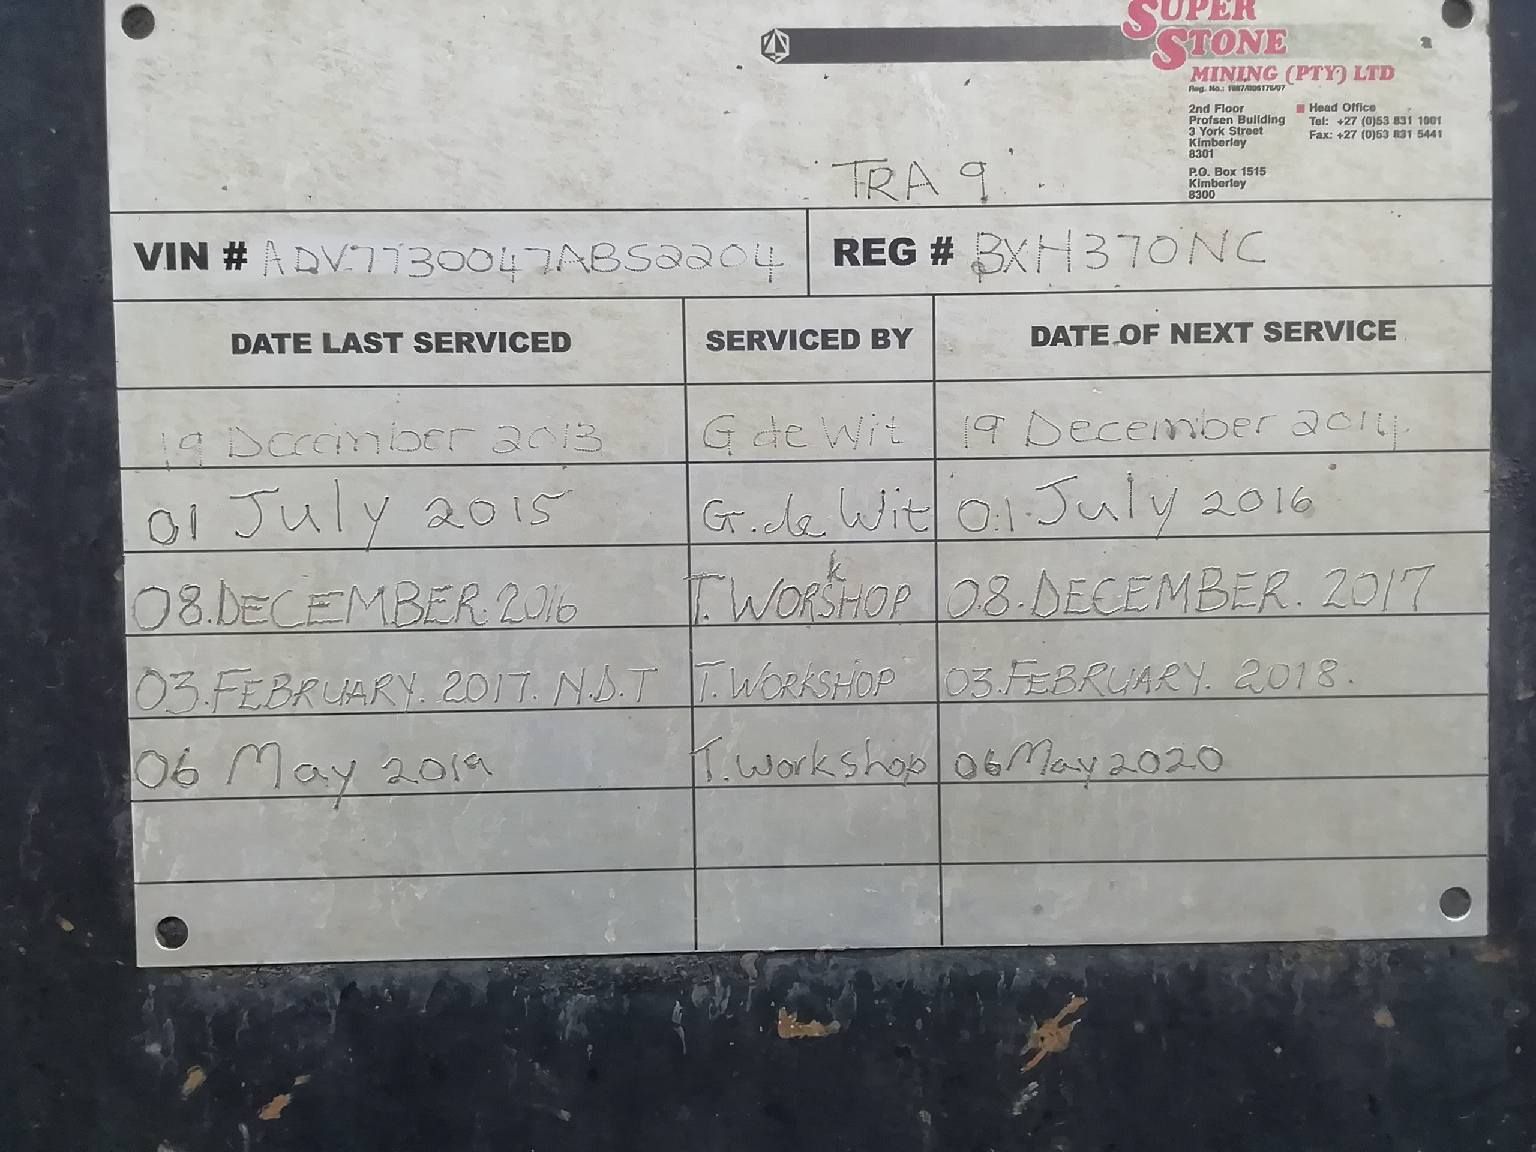 SUPER
STONE
MINING (PTY) LTD
2nd Floor
Profsen Building
3 York Street
Kimberley
8301
P.O. Box 1515
Kimberley
8300
Head Office
Tel: +27 (0)53 831 1001
Fax: +27 (0)53 831 5441
TRA 9
VIN # ADV7730047ABS2204 REG # BXH370NC
DATE LAST SERVICED SERVICED BY DATE OF NEXT SERVICE
19 December 2013 G de Wit 19 December 2014
01 July 2015 G. de Wit 01 July 2016
08.DECEMBER.2016 T.WORKSHOP 08.DECEMBER.2017
03.FEBRUARY.2017. N.D.T T.WORKSHOP 03.FEBRUARY.2018.
06 May 2019 T.Workshop 06 May 2020